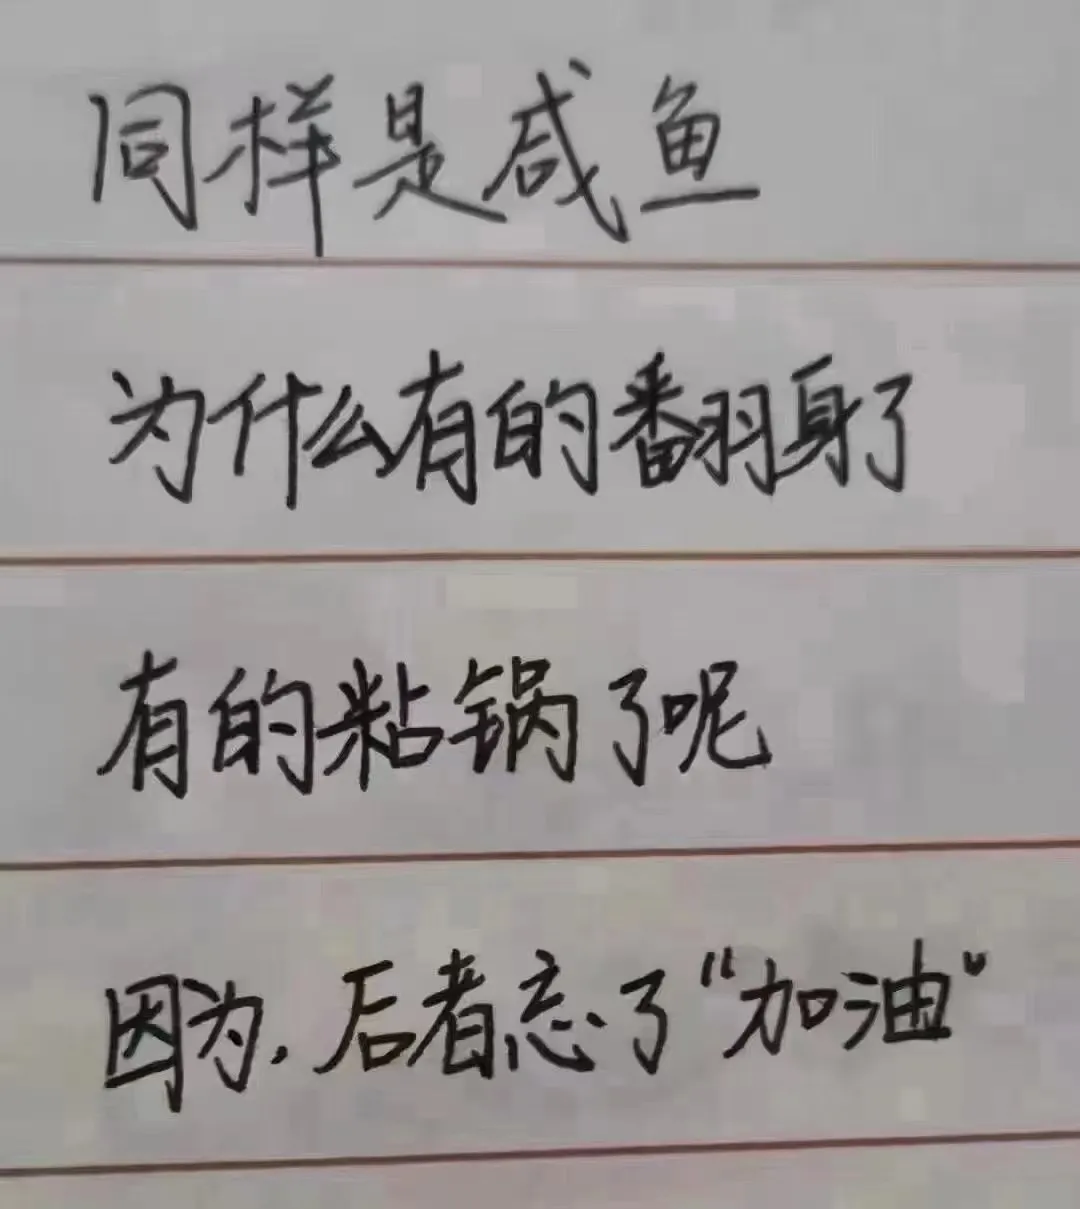 同样是咸鱼
为什么有的翻身了
有的粘锅了呢
因为.后者忘了“加油”